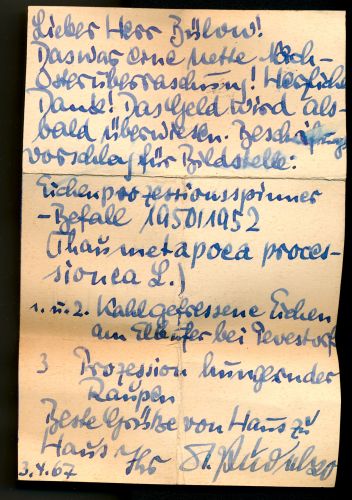 Lieber Herr Bülow!
Das war eine nette Nach-
Osterüberraschung! Herzlichen
Dank! Das Geld wird als-
bald überwiesen. Beschriftungs
vorschlag für Bildstelle:
Eichenprozessionsspinner
- Befall 1950/1952
(Thaumetapoea proces-
sionea L.)
1. u. 2. Kahlgefressene Eichen
am Elbufer bei Pevestorf
3 Prozession hungernder
Raupen
Beste Grüße von Haus zu
Haus Ihr
3.4.67